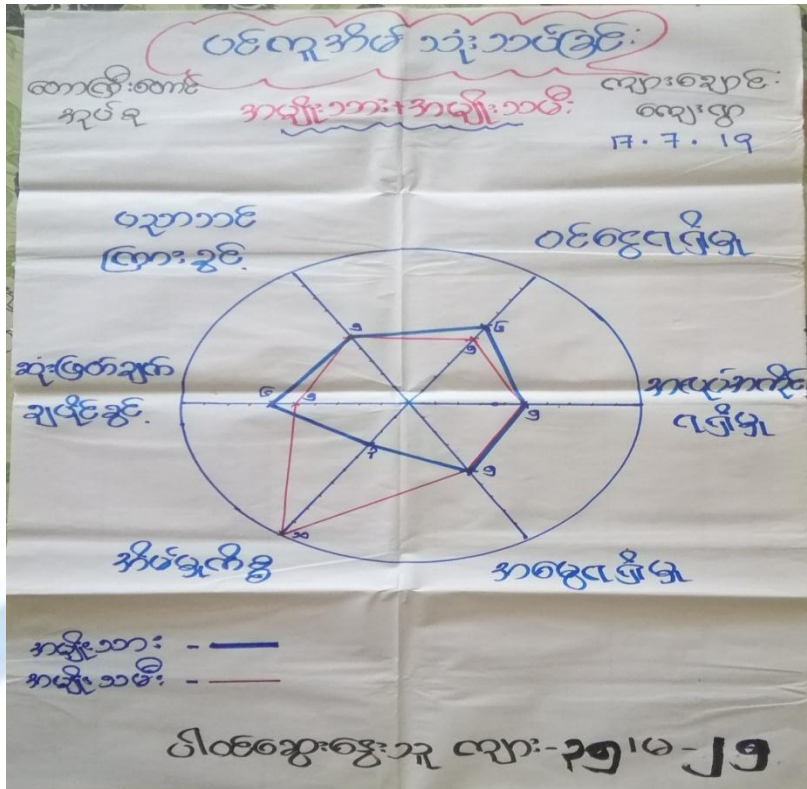 ပင့်ကူအိမ် သုံးသပ်ခြင်း
တောကြီးတောင်
အုပ်စု
အမျိုးသား+အမျိုးသမီး
ကျားချောင်း
ကျေးရွာ
17.7.19
ပညာသင်
ကြားခွင့်
ဝင်ငွေရရှိမှု
ဆုံးဖြတ်ချက်
ချပိုင်ခွင့်
အလုပ်အကိုင်
ရရှိမှု
အိမ်မှုကိစ္စ
အမွေရရှိမှု
၅
၆
၅
၆
၅
၅
၃
၅
၁၀
အမျိုးသား -
အမျိုးသမီး -
ပါဝင်ဆွေးနွေးသူ ကျား-၃၅၊မ-၂၅